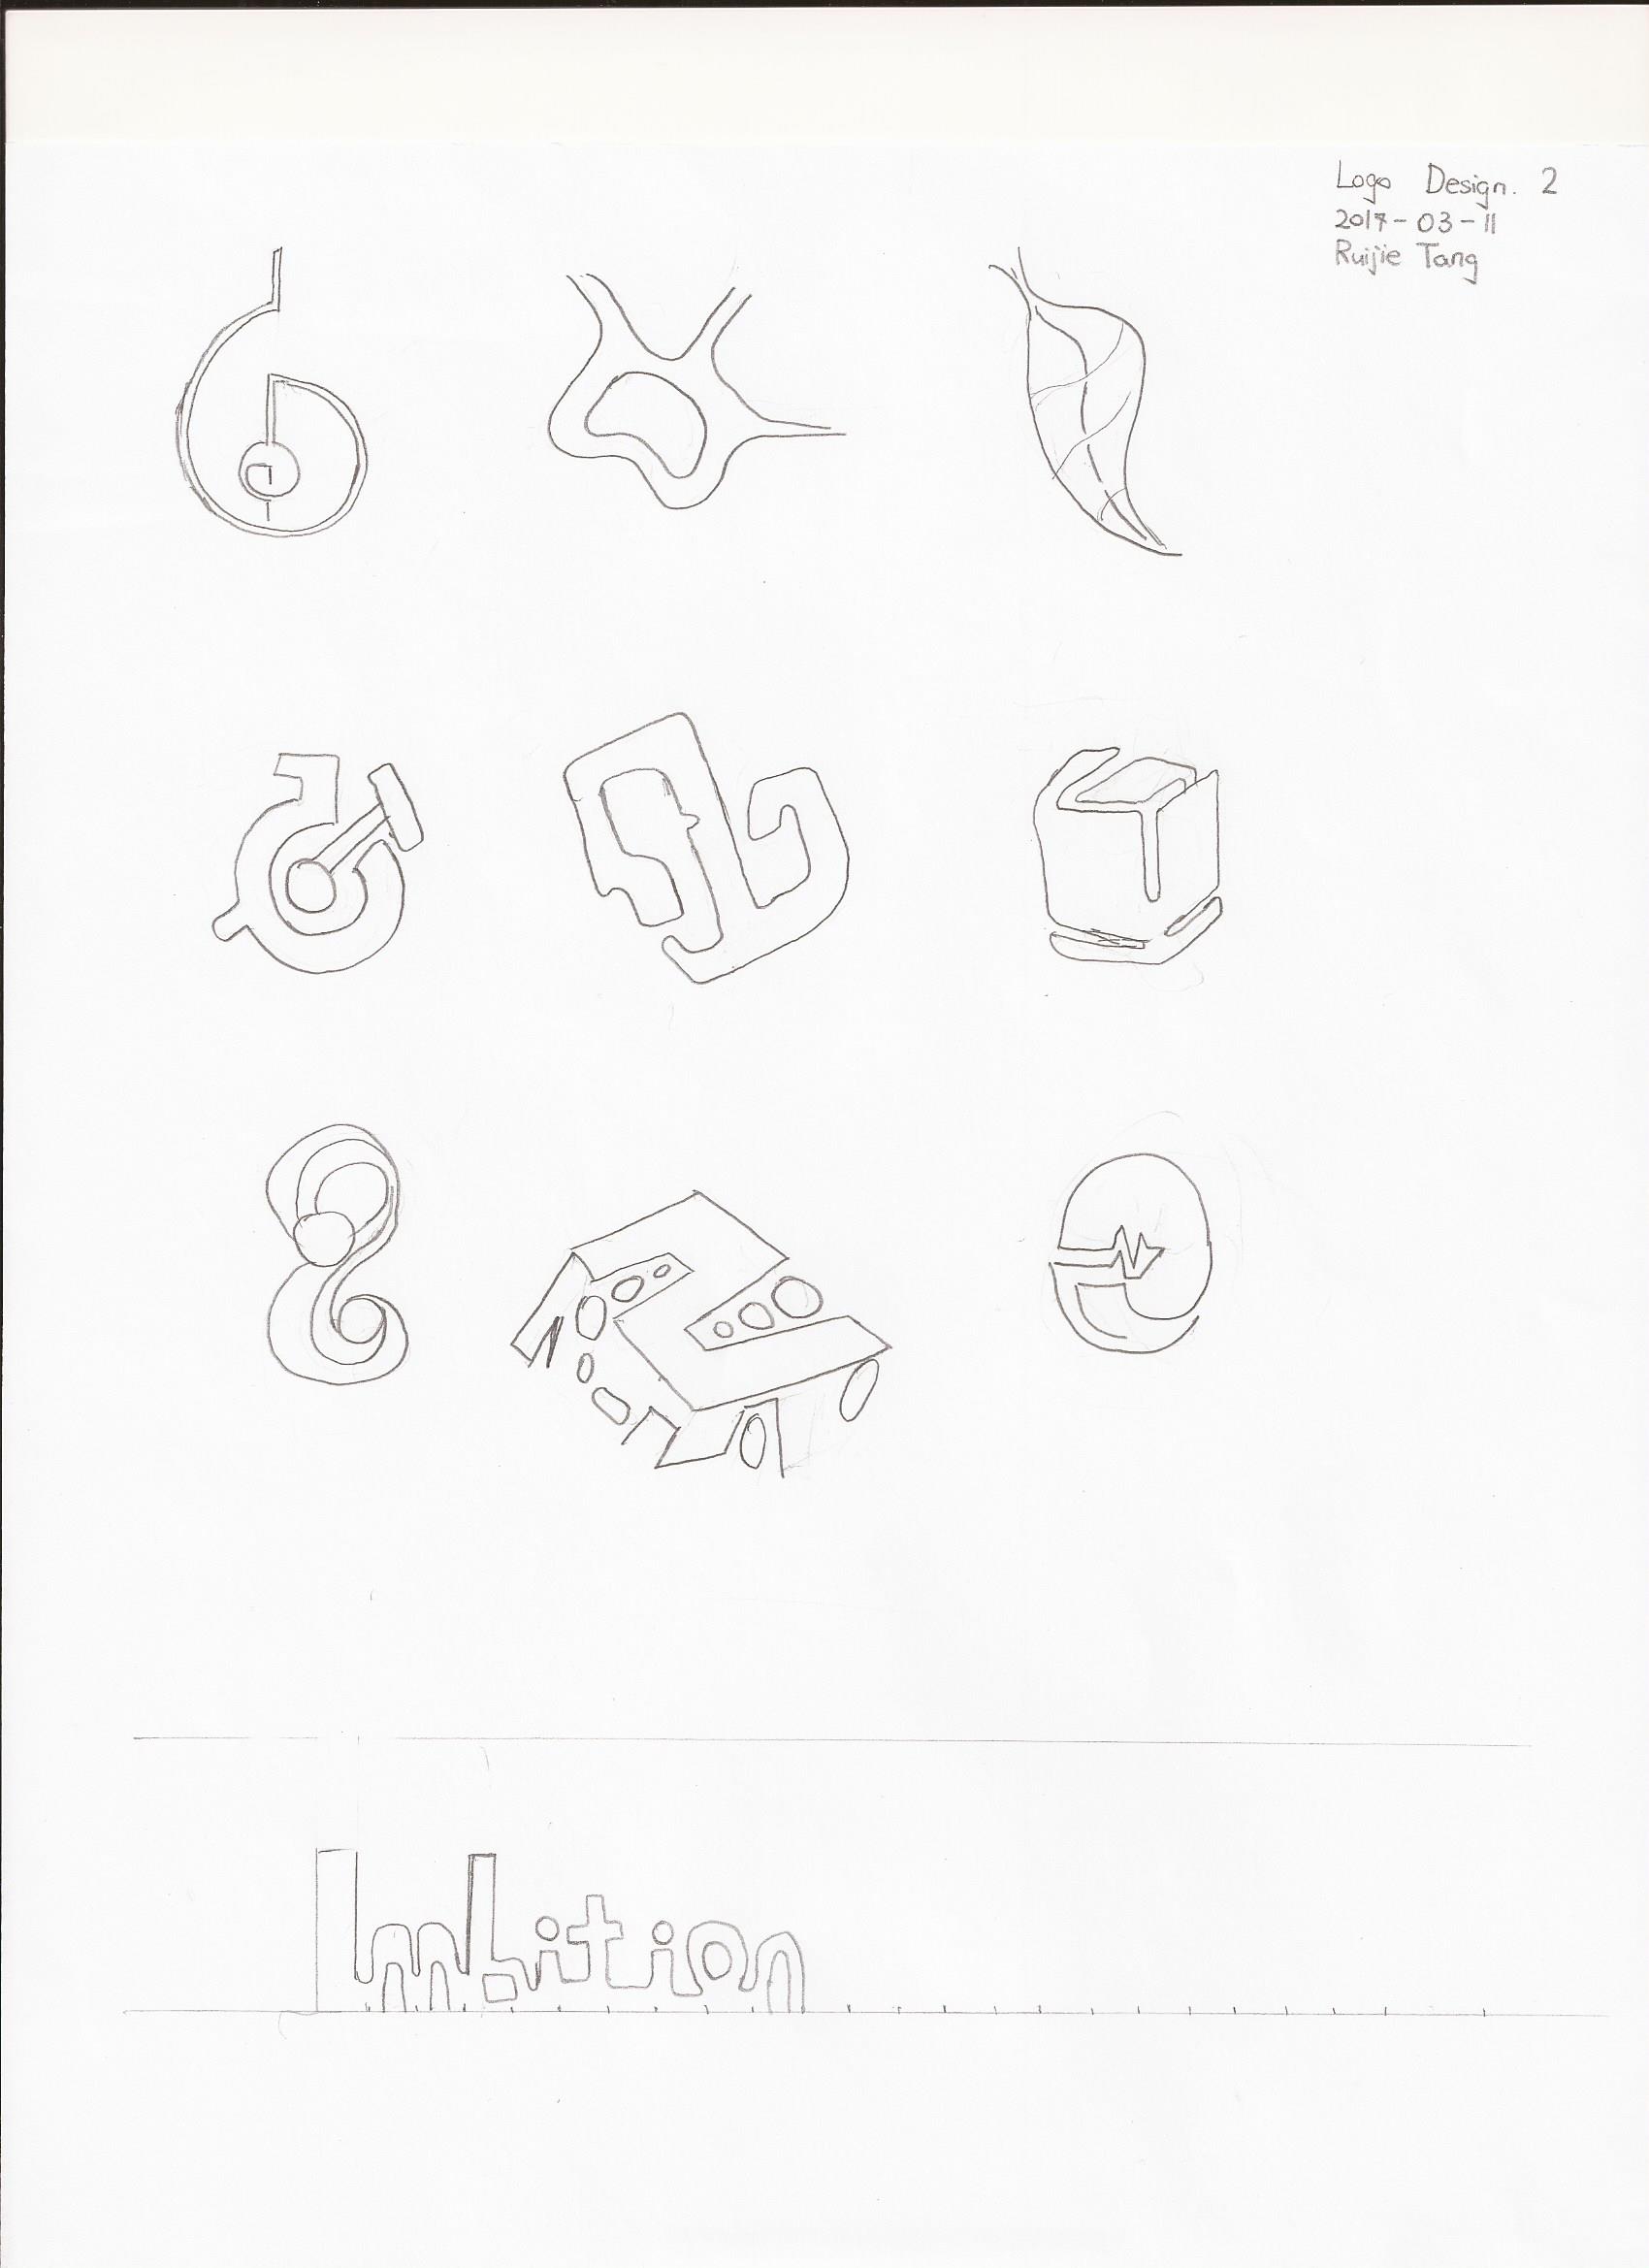 Logo Design. 2
2017-03-11
Ruijie Tang
Imbition